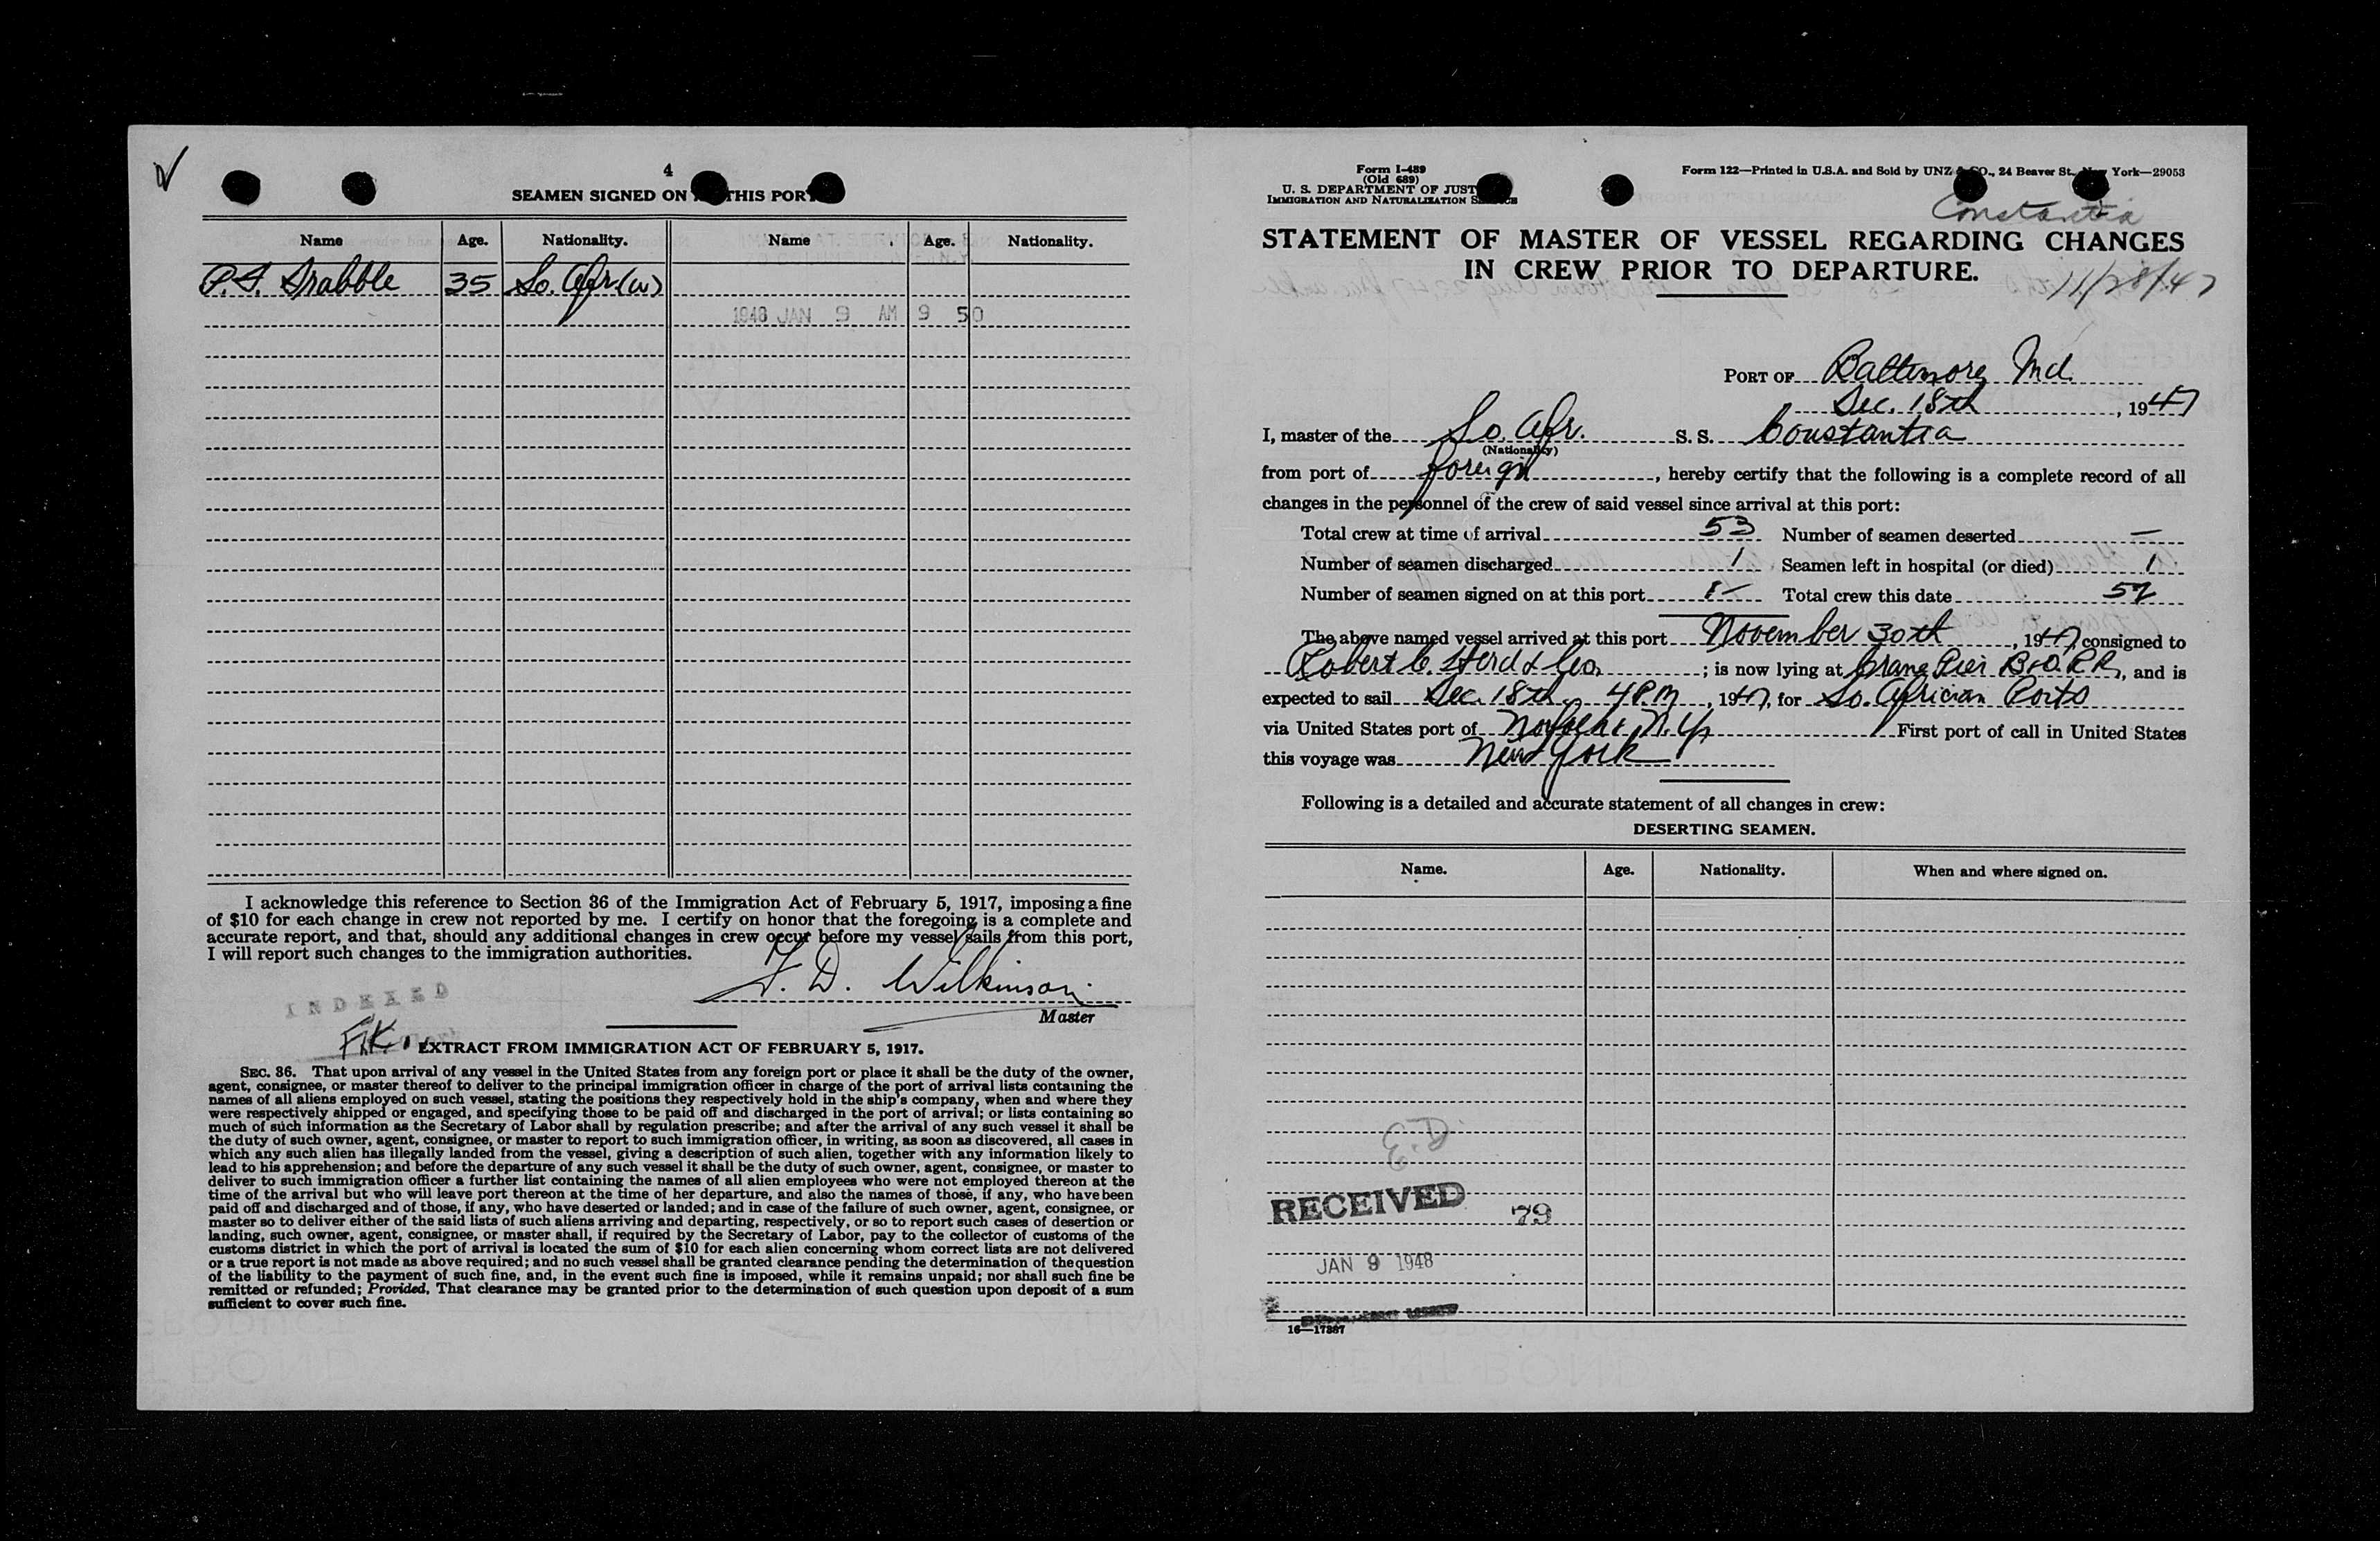 4
SEAMEN SIGNED ON THIS PORT
Name Age. Nationality. Name Age. Nationality.
35 So. Afr. (W)
1948 JAN 9 AM 9 50
I acknowledge this reference to Section 36 of the Immigration Act of February 5, 1917, imposing a fine
of $10 for each change in crew not reported by me. I certify on honor that the foregoing is a complete and
accurate report, and that, should any additional changes in crew occur before my vessel sails from this port,
I will report such changes to the immigration authorities.
F. D. Wilkinson
Master
INDEXED
F.K.
EXTRACT FROM IMMIGRATION ACT OF FEBRUARY 5, 1917.
SEC. 36. That upon arrival of any vessel in the United States from any foreign port or place it shall be the duty of the owner,
agent, consignee, or master thereof to deliver to the principal immigration officer in charge of the port of arrival lists containing the
names of all aliens employed on such vessel, stating the positions they respectively hold in the ship's company, when and where they
were respectively shipped or engaged, and specifying those to be paid off and discharged in the port of arrival; or lists containing so
much of such information as the Secretary of Labor shall by regulation prescribe; and after the arrival of any such vessel it shall be
the duty of such owner, agent, consignee, or master to report to such immigration officer, in writing, as soon as discovered, all cases in
which any such alien has illegally landed from the vessel, giving a description of such alien, together with any information likely to
lead to his apprehension; and before the departure of any such vessel it shall be the duty of such owner, agent, consignee, or master to
deliver to such immigration officer a further list containing the names of all alien employees who were not employed thereon at the
time of the arrival but who will leave port thereon at the time of her departure, and also the names of those, if any, who have been
paid off and discharged and of those, if any, who have deserted or landed; and in case of the failure of such owner, agent, consignee, or
master so to deliver either of the said lists of such aliens arriving and departing, respectively, or so to report such cases of desertion or
landing, such owner, agent, consignee, or master shall, if required by the Secretary of Labor, pay to the collector of customs of the
customs district in which the port of arrival is located the sum of $10 for each alien concerning whom correct lists are not delivered
or a true report is not made as above required; and no such vessel shall be granted clearance pending the determination of the question
of the liability to the payment of such fine, and, in the event such fine is imposed, while it remains unpaid; nor shall such fine be
remitted or refunded; Provided, That clearance may be granted prior to the determination of such question upon deposit of a sum
sufficient to cover such fine.
Form I-489
(Old 689)
U. S. DEPARTMENT OF JUST
IMMIGRATION AND NATURALIZATION SERVICE
Form 122—Printed in U.S.A. and Sold by UNZ & CO., 24 Beaver St., New York—29053
Constantia
STATEMENT OF MASTER OF VESSEL REGARDING CHANGES
IN CREW PRIOR TO DEPARTURE.
11/28/47
PORT OF Baltimore, Md.
Dec. 18th, 1947
I, master of the So. Afr. S. S. Constantia
(Nationality)
from port of foreign, hereby certify that the following is a complete record of all
changes in the personnel of the crew of said vessel since arrival at this port:
Total crew at time of arrival 53 Number of seamen deserted —
Number of seamen discharged 1 Seamen left in hospital (or died) 1
Number of seamen signed on at this port 1 — Total crew this date 52
The above named vessel arrived at this port November 30th, 1947, consigned to
Robert C. Herd & Co.; is now lying at Crane Pier B&O. R.R., and is
expected to sail Dec. 18th 4 P.M, 1947, for So. African Ports
via United States port of Norfolk & N.Y. First port of call in United States
this voyage was New York
Following is a detailed and accurate statement of all changes in crew:
DESERTING SEAMEN.
Name. Age. Nationality. When and where signed on.
E.D.
RECEIVED 79
JAN 9 1948
16—17387